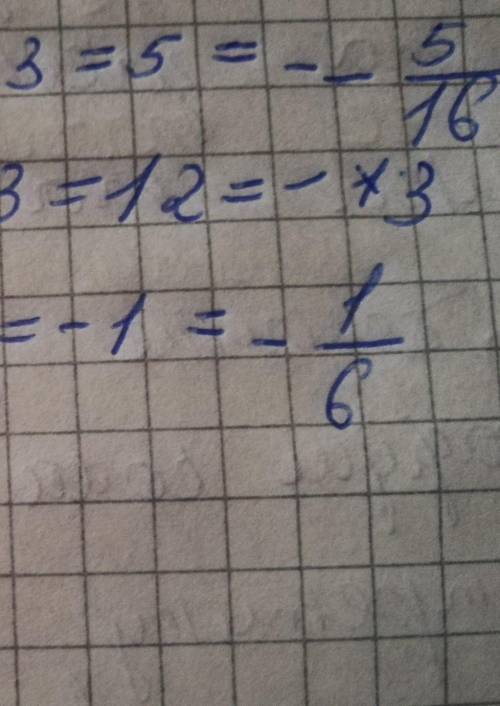 3 = 5 = - - 5/16
3 = 12 = - × 3
= - 1 = - 1/6